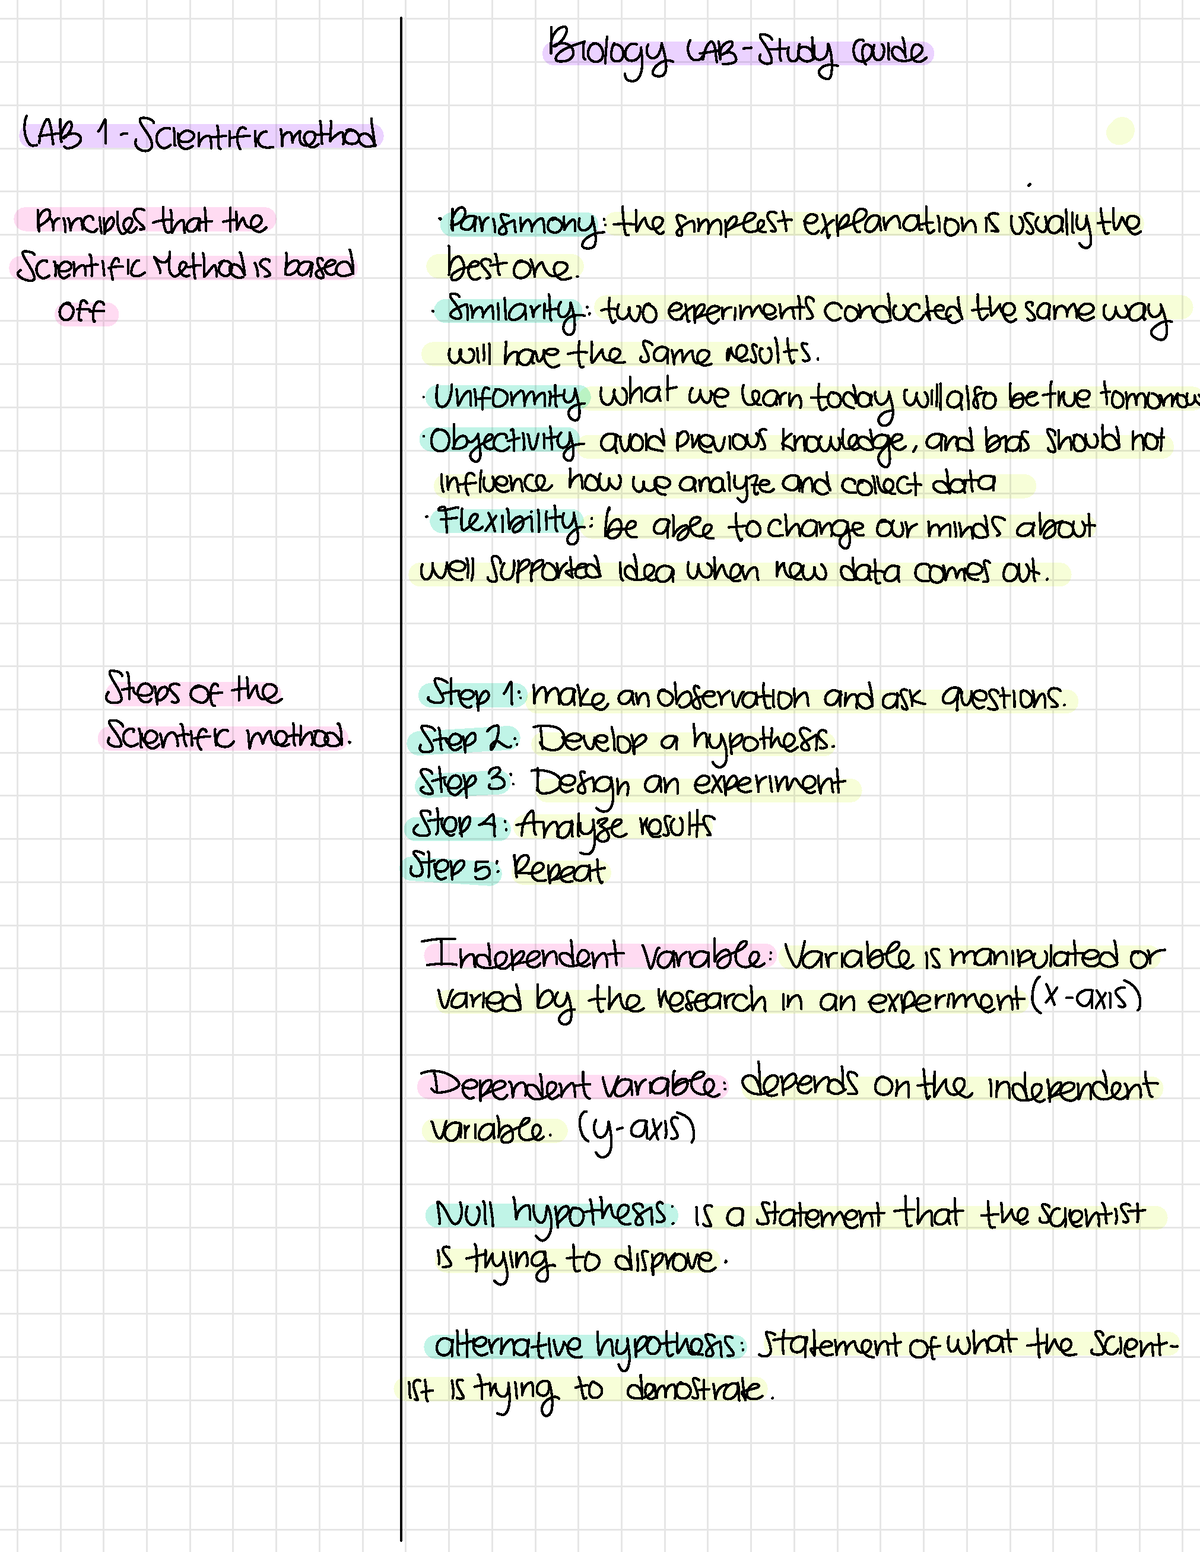 Biology LAB-Study Guide
LAB 1 - Scientific method
Principles that the
Scientific Method is based
off
· Parisimony: the simplest explanation is usually the
best one.
· Similarity: two experiments conducted the same way
will have the same results.
· Uniformity what we learn today will also be true tomorrow
· Objectivity avoid previous knowledge, and bias should not
influence how we analyze and collect data
· Flexibility: be able to change our minds about
well supported idea when new data comes out.
Steps of the
Scientific method.
Step 1: make an observation and ask questions.
Step 2: Develop a hypothesis.
Step 3: Design an experiment
Step 4: Analyze results
Step 5: Repeat
Independent Variable: Variable is manipulated or
varied by the research in an experiment (x-axis)
Dependent variable: depends on the independent
variable. (y-axis)
Null hypothesis: is a statement that the scientist
is trying to disprove.
alternative hypothesis: Statement of what the scient-
ist is trying to demostrate.